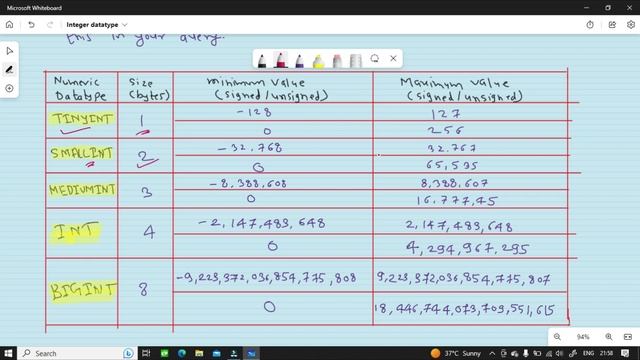 Microsoft Whiteboard
Integer datatype
this in your query.
Numeric Datatype Size (bytes) minimum value (signed/unsigned) Maximum value (signed/unsigned)
TINYINT 1 -128 127
0 256
SMALLINT 2 -32,768 32,767
0 65,535
MEDIUMINT 3 -8,388,608 8,388,607
0 16,777,45
INT 4 -2,147,483,648 2,147,483,648
0 4,294,967,295
BIGINT 8 -9,223,372,036,854,775,808 9,223,372,036,854,775,807
0 18,446,744,073,709,551,615
94%
Search
37°C Sunny ENG 21:58